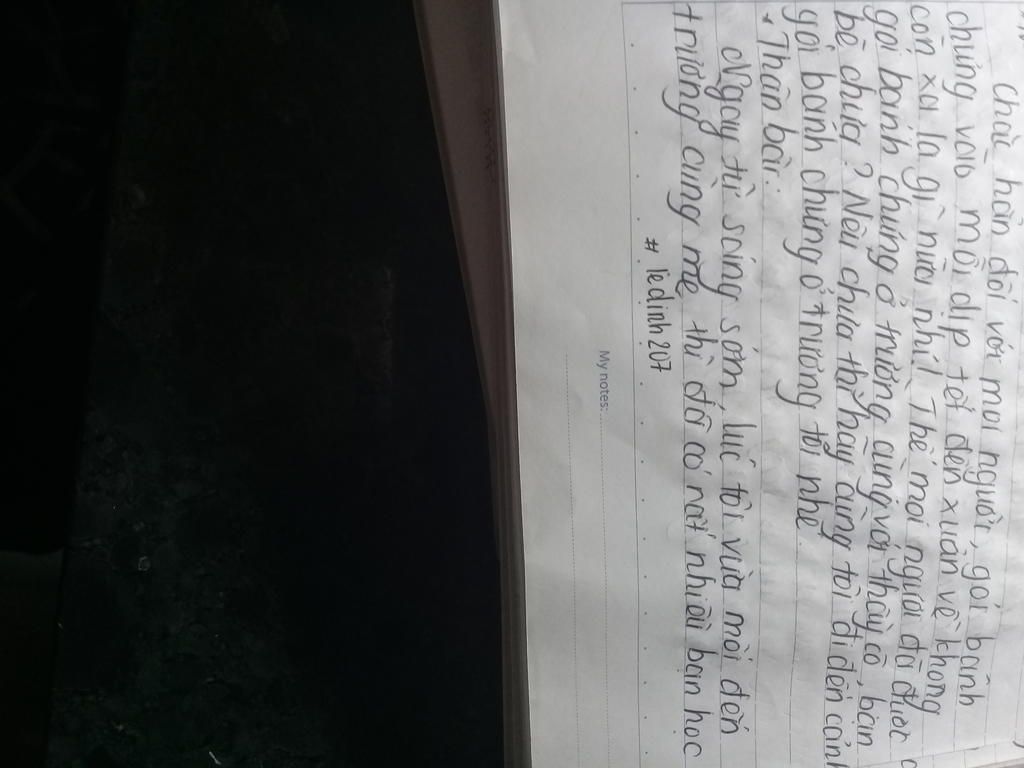 Chắc hẳn đối với mọi người, gói bánh
chưng vào mỗi dịp tết đến xuân về không
còn xa lạ gì nữa nhỉ! Thế mọi người đã được
gói bánh chưng ở trường cùng với thầy cô, bạn
bè chưa? Nếu chưa thì hãy cùng tôi đi đến cảnh
gói bánh chưng ở trường tôi nhé.
* Thân bài:
Ngay từ sáng sớm, lúc tôi vừa mới đến
trường cùng mẹ thì đã có rất nhiều bạn học
# ledinh207
My notes: